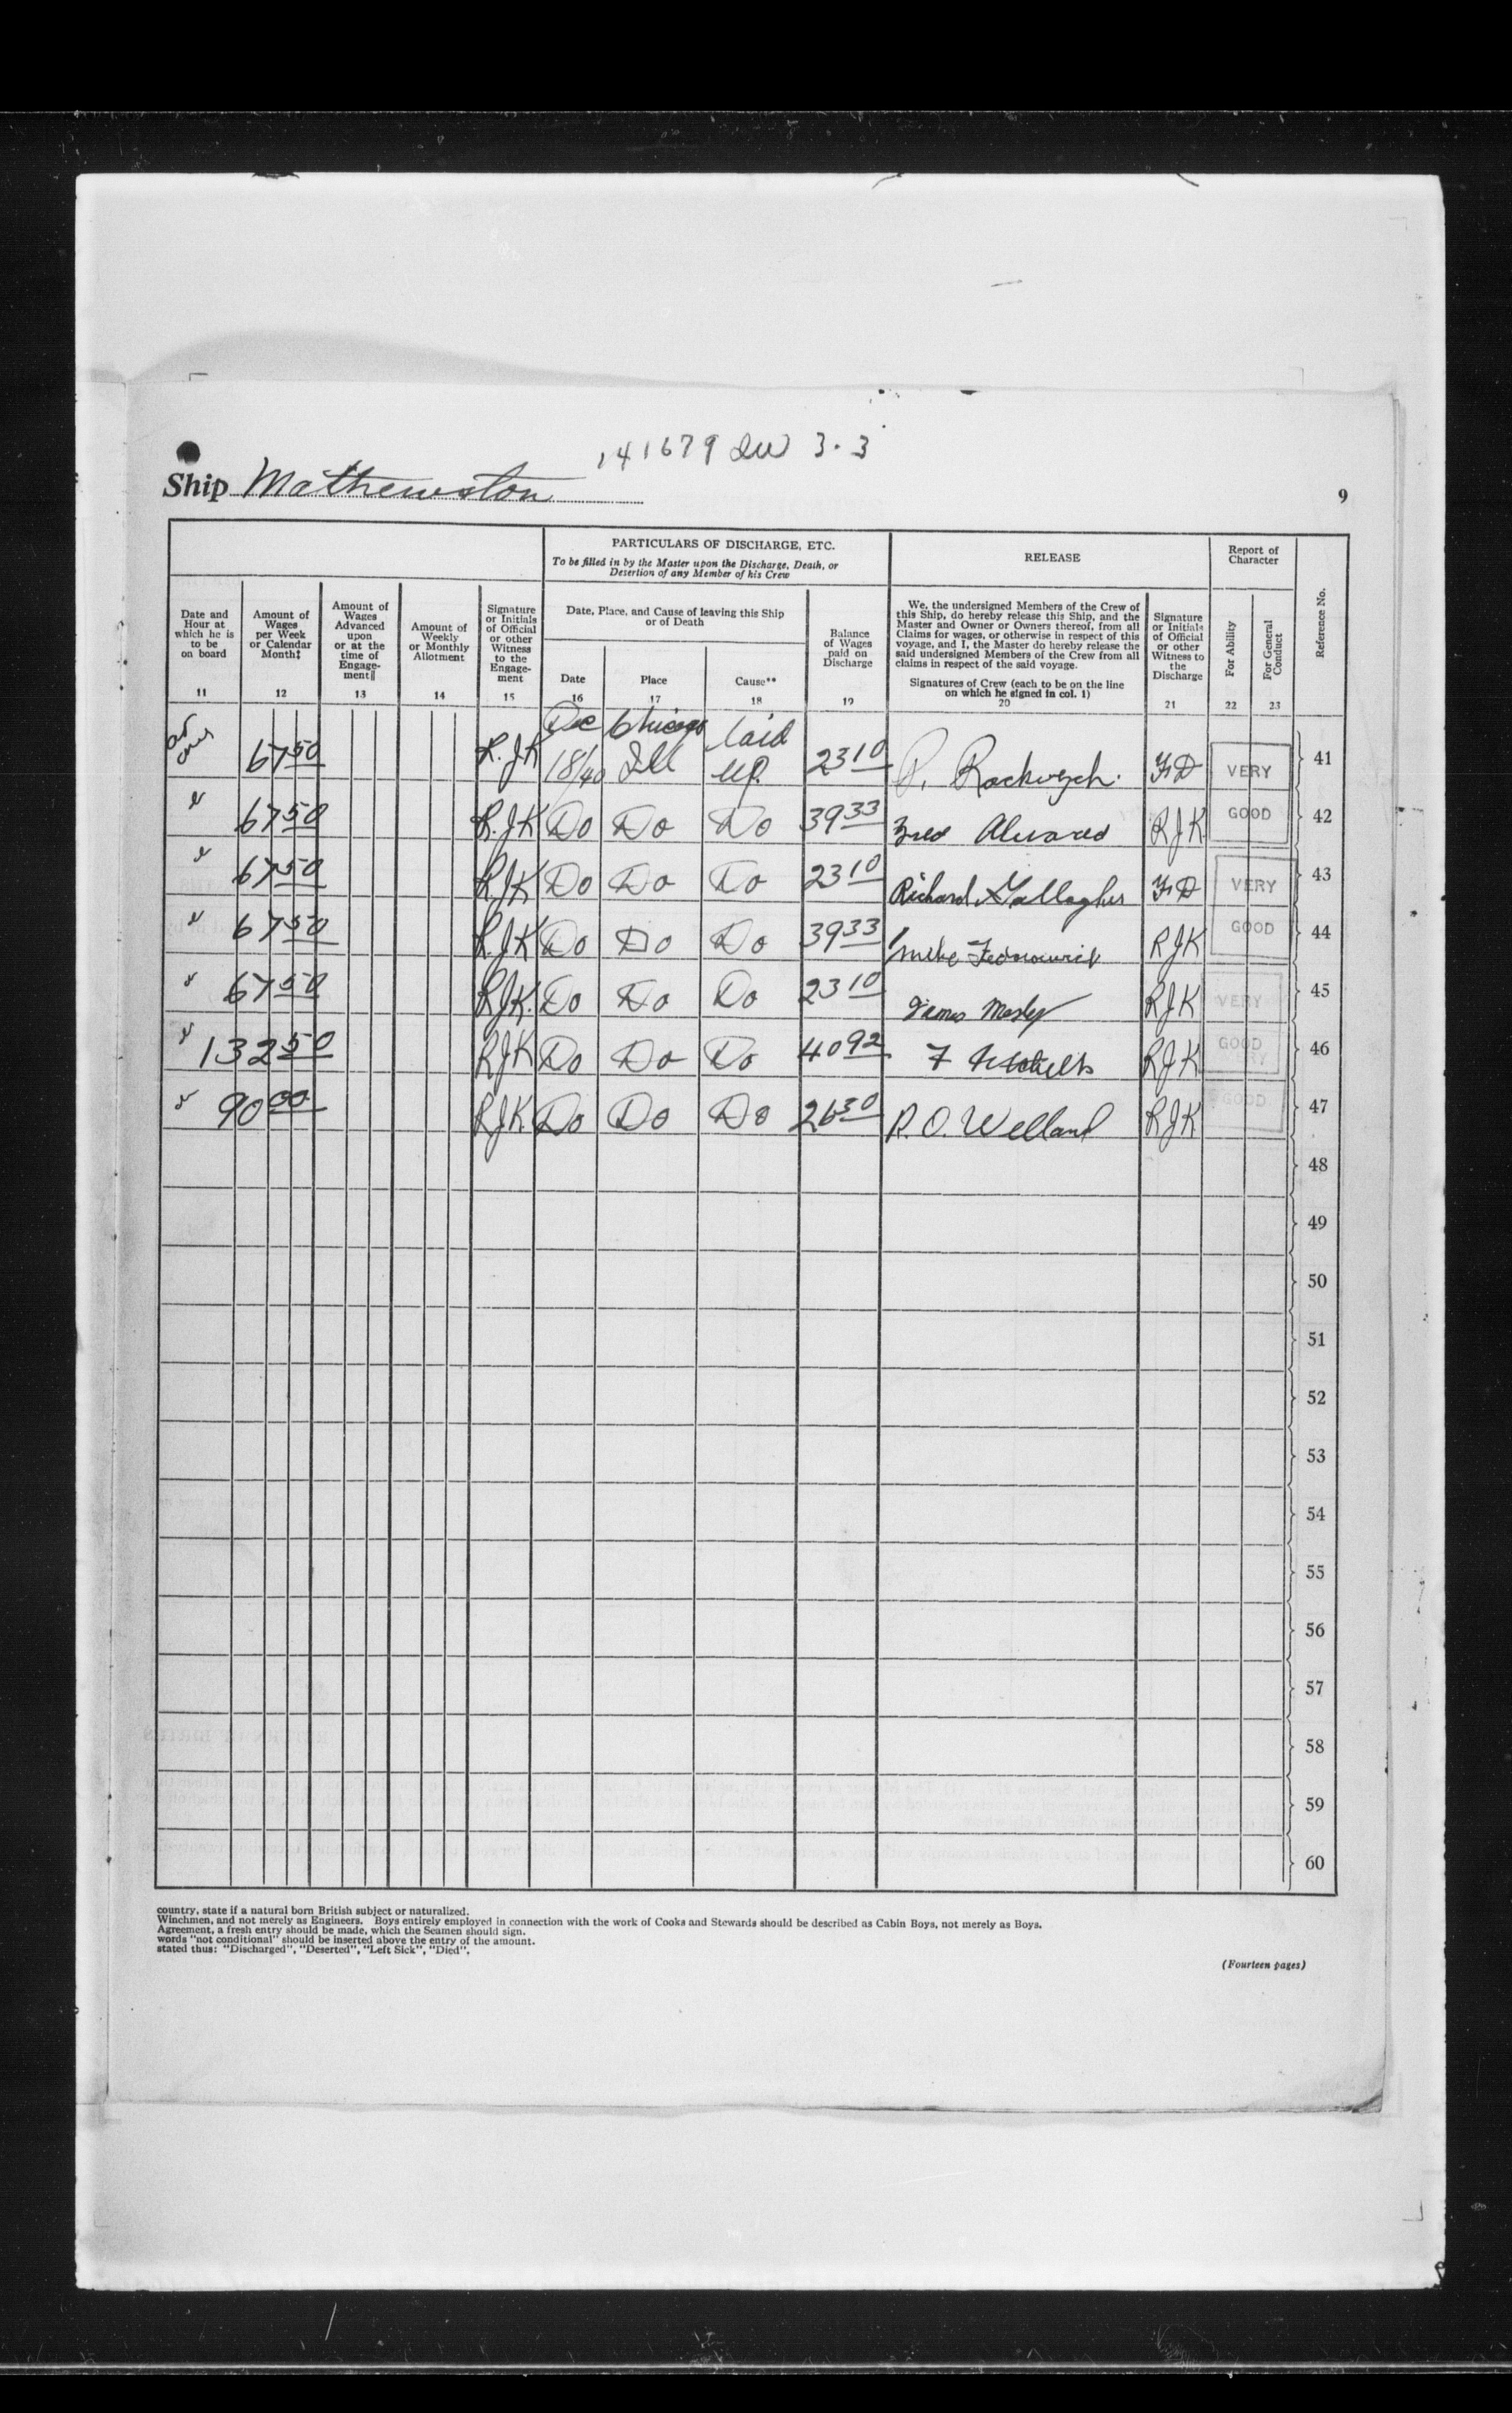 141679 QW 3.3
Ship Mathewston
9
PARTICULARS OF DISCHARGE, ETC.
To be filled in by the Master upon the Discharge, Death, or
Desertion of any Member of his Crew
RELEASE
Report of
Character
Reference No.
Date and
Hour at
which he is
to be
on board
11
Amount of
Wages
per Week
or Calendar
Month‡
12
Amount of
Wages
Advanced
upon
or at the
time of
Engage-
ment||
13
Amount of
Weekly
or Monthly
Allotment
14
Signature
or Initials
of Official
or other
Witness
to the
Engage-
ment
15
Date, Place, and Cause of leaving this Ship
or of Death
Date
16
Place
17
Cause**
18
Balance
of Wages
paid on
Discharge
19
We, the undersigned Members of the Crew of
this Ship, do hereby release this Ship, and the
Master and Owner or Owners thereof, from all
Claims for wages, or otherwise in respect of this
voyage, and I, the Master do hereby release the
said undersigned Members of the Crew from all
claims in respect of the said voyage.
Signatures of Crew (each to be on the line
on which he signed in col. 1)
20
Signature
or Initials
of Official
or other
Witness to
the
Discharge
21
For Ability
22
For General
Conduct
23
Dec Chicago laid
67 50 R.J.K 18/40 Ill up 23 10 P. Rockwych. FD VERY 41
" 67 50 R.J.K Do Do Do 39 33 Fred Alvared RJK GOOD 42
" 67 50 RJK Do Do Do 23 10 Richard Gallagher FD VERY 43
" 67 50 RJK Do Do Do 39 33 Mike RJK GOOD 44
" 67 50 RJK. Do Do Do 23 10 James Mosley RJK VERY 45
" 132 50 RJK Do Do Do 40 92 F RJK GOOD 46
" 90 00 RJK Do Do Do 26 30 R. O. Welland RJK GOOD 47
48
49
50
51
52
53
54
55
56
57
58
59
60
country, state if a natural born British subject or naturalized.
Winchmen, and not merely as Engineers. Boys entirely employed in connection with the work of Cooks and Stewards should be described as Cabin Boys, not merely as Boys.
Agreement, a fresh entry should be made, which the Seamen should sign.
words "not conditional" should be inserted above the entry of the amount.
stated thus: "Discharged", "Deserted", "Left Sick", "Died".
(Fourteen pages)